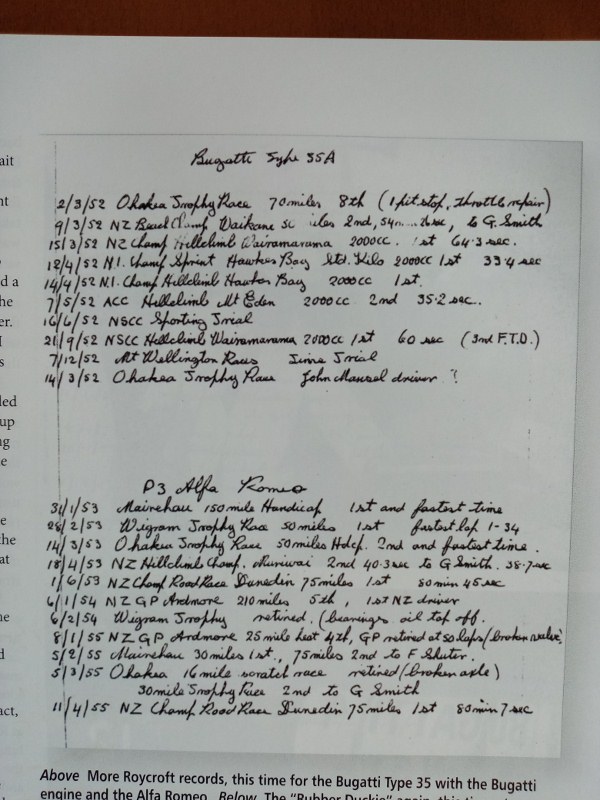 Bugatti Type 35A
2/3/52 Ohakea Trophy Race 70 miles 8th (1 pit stop, throttle repair)
9/3/52 NZ Beach Champ Waikane 2nd, to G. Smith
15/3/52 NZ Champ Hillclimb Wairamarama 2000cc. 1st 64.3 sec.
12/4/52 N.I. Champ Sprint Hawkes Bay Std. Kilo 2000cc 1st 33.4 sec
14/4/52 N.I. Champ Hillclimb Hawkes Bay 2000cc 1st.
7/5/52 ACC Hillclimb Mt Eden 2000cc 2nd 35.2 sec.
16/6/52 NSCC Sporting Trial
21/9/52 NSCC Hillclimb Wairamarama 2000cc 1st 60 sec (3rd F.T.D.)
7/12/52 Mt Wellington Races Time Trial
14/3/52 Ohakea Trophy Race John Mansel driver ?
P3 Alfa Romeo
31/1/53 Mairehau 150 mile Handicap 1st and fastest time
28/2/53 Wigram Trophy Race 50 miles 1st fastest lap 1-34
14/3/53 Ohakea Trophy Race 50 miles Hdcp. 2nd and fastest time.
18/4/53 NZ Hillclimb Champ. Muriwai 2nd 40.3 sec to G Smith. 38.7 sec
1/6/53 NZ Champ Road Race Dunedin 75 miles 1st 80 min 45 sec
6/1/54 NZ GP Ardmore 210 miles 5th, 1st NZ driver
6/2/54 Wigram Trophy retired. (bearings oil top off.
8/1/55 NZ GP. Ardmore 25 mile heat 4th, GP retired at 50 laps (broken valve)
5/2/55 Mairehau 30 miles 1st., 75 miles 2nd to F Shuter.
5/3/55 Ohakea 16 mile scratch race retired (broken axle)
30 mile Trophy Race 2nd to G Smith
11/4/55 NZ Champ Road Race Dunedin 75 miles 1st 80 min 7 sec
Above More Roycroft records, this time for the Bugatti Type 35 with the Bugatti
engine and the Alfa Romeo. Below The "Rubber Duckie" again, this